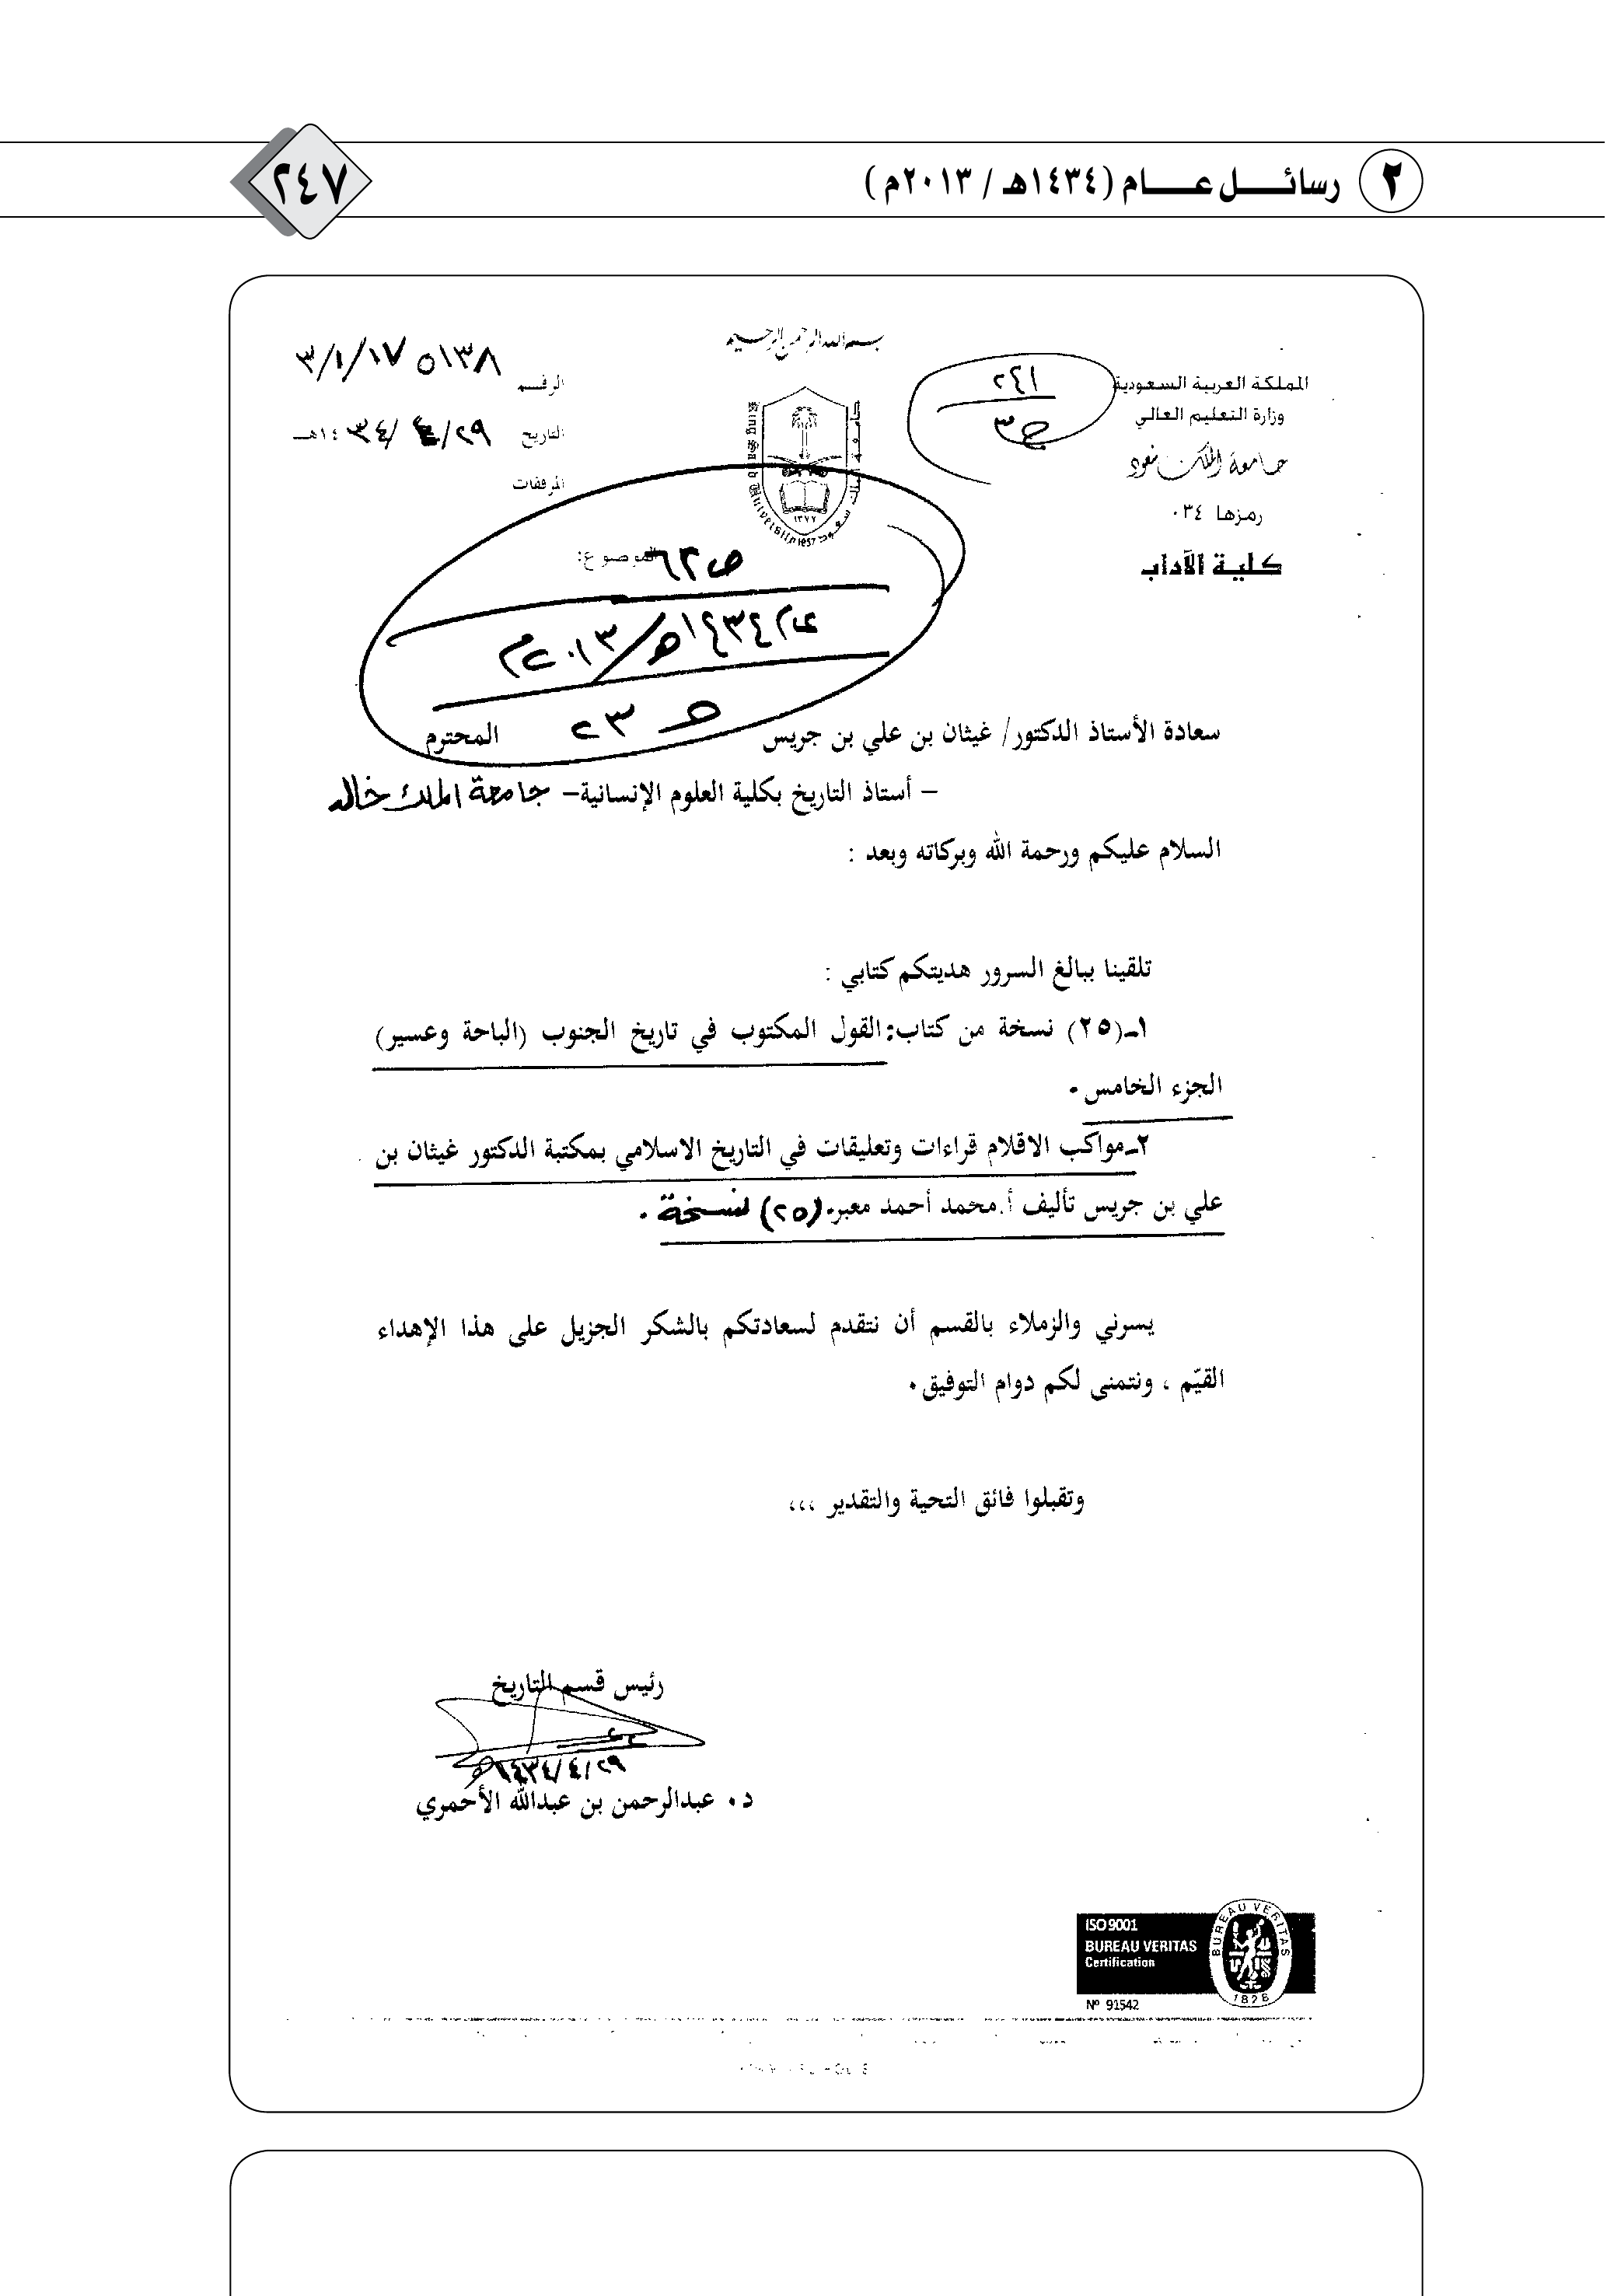 ٢ رسائل عام (١٤٣٤هـ / ٢٠١٣م)
٢٤٧
بسم الله الرحمن الرحيم
المملكة العربية السعودية
وزارة التعليم العالي
جامعة الملك سعود
رمزها ٠٣٤
كلية الآداب
٢٤١
ج٣
King Saud University 1957
١٣٧٧
الرقم ٥١٣٨
التاريخ ٢٩/٤/١٤٣٤هـ
المرفقات
الموضوع:
١٤٣٤هـ/٢٠١٣م
سعادة الأستاذ الدكتور/ غيثان بن علي بن جريس المحترم
– أستاذ التاريخ بكلية العلوم الإنسانية– جامعة الملك خالد
السلام عليكم ورحمة الله وبركاته وبعد :
تلقينا ببالغ السرور هديتكم كتابي :
١ـ(٢٥) نسخة من كتاب: القول المكتوب في تاريخ الجنوب (الباحة وعسير)
الجزء الخامس.
٢ـمواكب الاقلام قراءات وتعليقات في التاريخ الاسلامي بمكتبة الدكتور غيثان بن
علي بن جريس تأليف أ.محمد أحمد معبر. (٢٥) نسخة .
يسرني والزملاء بالقسم أن نتقدم لسعادتكم بالشكر الجزيل على هذا الإهداء
القيّم ، ونتمنى لكم دوام التوفيق.
وتقبلوا فائق التحية والتقدير ،،،
رئيس قسم التاريخ
٢٩/٤/١٤٣٤هـ
د. عبدالرحمن بن عبدالله الأحمري
ISO 9001
BUREAU VERITAS
Certification
Nº 91542
BUREAU VERITAS
1828